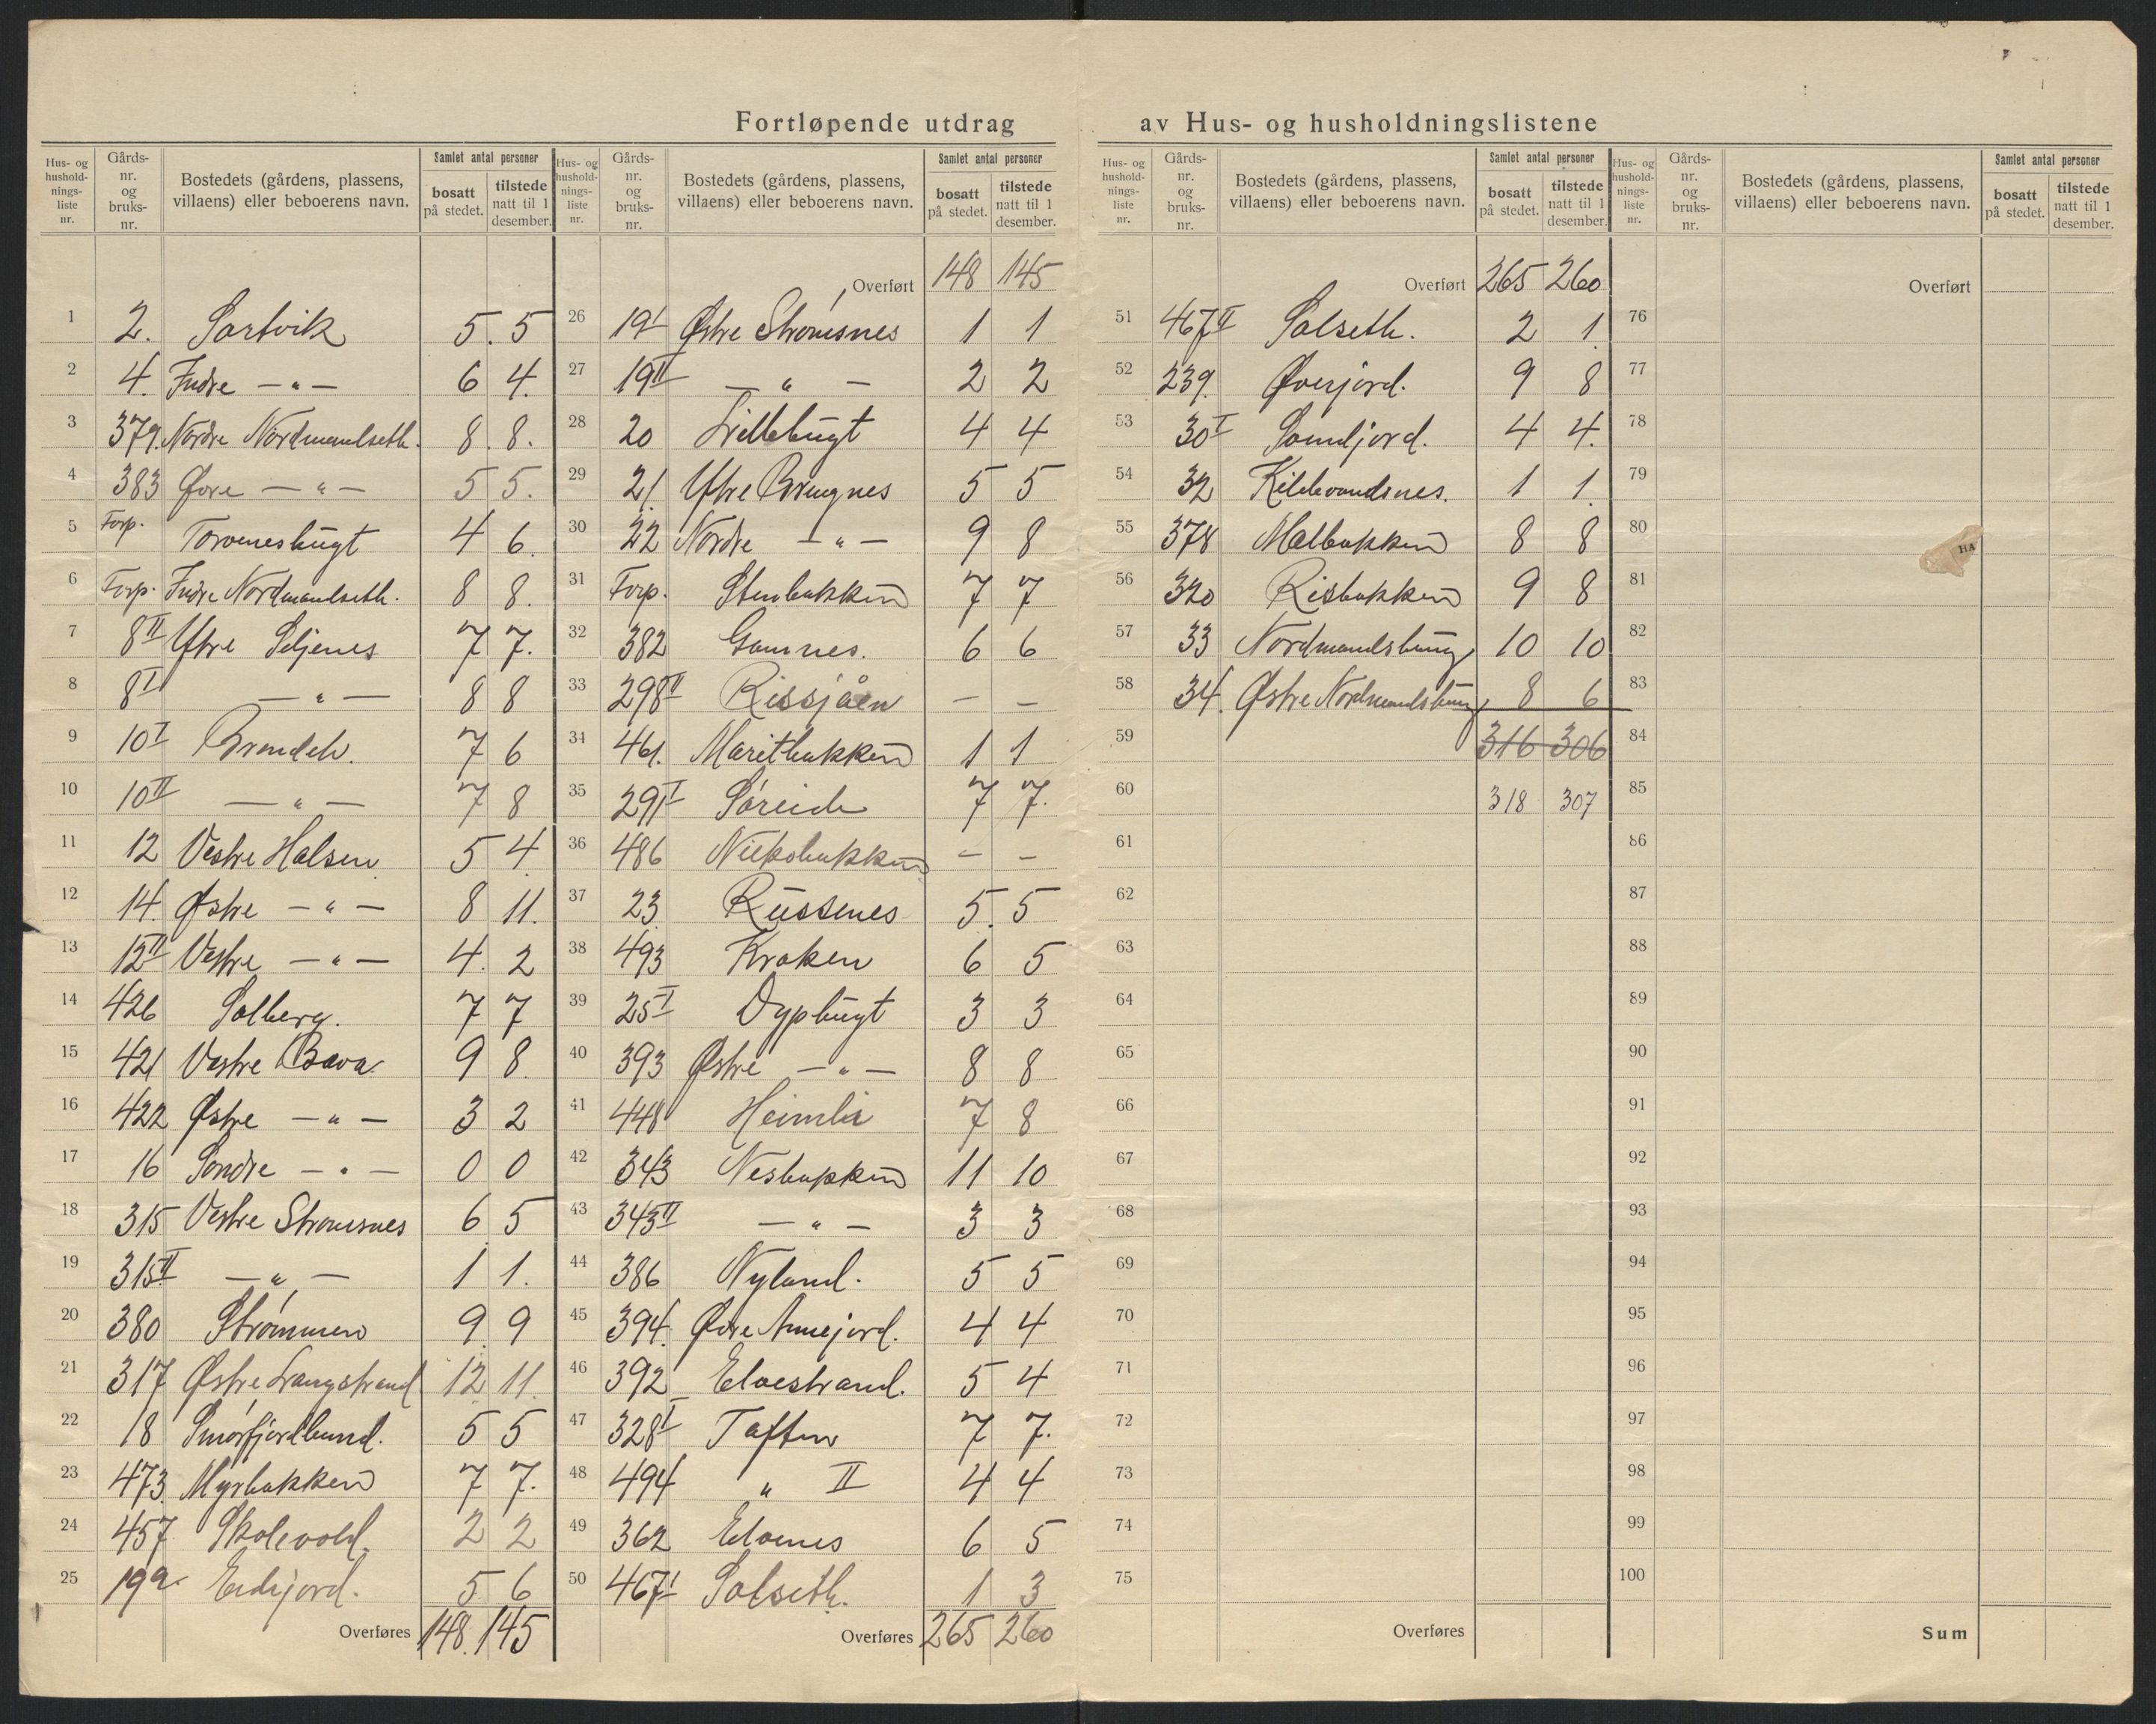 Fortløpende utdrag av Hus- og husholdningslistene
Hus- og husholdnings-liste nr. Gårds-nr. og bruks-nr. Bostedets (gårdens, plassens, villaens) eller beboerens navn. Samlet antal personer bosatt på stedet. tilstede natt til 1 desember.
1 2. Sortvik 5. 5
2 4. Indre —"— 6 4.
3 379. Nordre Nordmandseth. 8. 8.
4 383 Øvre —"— 5 5.
5 Forp. Torvenesbugt 4 6.
6 Forp. Indre Nordmandseth. 8 8.
7 8II Ytre Seljenes 7 7.
8 8I —"— 8 8
9 10I Brendeh. 7 6
10 10II —"— 7 8
11 12 Vestre Halsen 5 4.
12 14. Østre —"— 8 11.
13 12II Vestre —"— 4. 2
14 426 Solberg. 7 7
15 421 Vestre Bava 9 8.
16 422 Østre —"— 3 2
17 16 Søndre —"— 0 0
18 315 Vestre Strømsnes 6 5
19 315II —"— 1 1.
20 380 Strømmen 9. 9
21 317 Østre Langstrand 12 11.
22 18 Smørfjordbund. 5 5
23 473. Myrbakken 7 7.
24 457 Skolevold. 2 2
25 199. Eidijord. 5 6
Overføres 148. 145
Hus- og husholdnings-liste nr. Gårds-nr. og bruks-nr. Bostedets (gårdens, plassens, villaens) eller beboerens navn. Samlet antal personer bosatt på stedet. tilstede natt til 1 desember.
Overført 148 145
26 19I Østre Strømsnes 1 1
27 19II —"— 2 2
28 20 Lillebugt 4 4
29 21. Ytre Brengnes 5 5
30 22 Nordre —"— 9 8
31 Forp. Stenbakken 7 7
32 382 Gamnes. 6 6
33 298II Rissjåen — —
34 461. Maritbakken 1 1
35 291I Søreide 7 7.
36 486 Niekobakken — —
37 23 Russenes 5. 5
38 493 Kroken 6 5
39 25I Dypbugt 3 3
40 393 Østre —"— 8 8
41 448 Heimli 7 8
42 343 Nesbakken 11 10
43 343II —"— 3 3
44 386 Nyland. 5 5
45 394. Øvre Annejord. 4 4
46 392 Elvestrand. 5 4
47 328I Toften 7 7.
48 494 " II 4 4
49 362 Elvenes 6 5
50 467I Solseth. 1 3
Overføres 265 260
Hus- og husholdnings-liste nr. Gårds-nr. og bruks-nr. Bostedets (gårdens, plassens, villaens) eller beboerens navn. Samlet antal personer bosatt på stedet. tilstede natt til 1 desember.
Overført 265 260
51 467II Solseth. 2 1
52 239. Øverjord. 9 8
53 30I Sandjord. 4 4.
54 32 Kildevandsnes. 1 1.
55 378 Melbakken 8 8
56 320 Risbakken 9 8
57 33 Nordmandsbung 10 10
58 34. Østre Nordmandsbung 8 6
59 316 306
60 318 307
61
62
63
64
65
66
67
68
69
70
71
72
73
74
75
Overføres
Hus- og husholdnings-liste nr. Gårds-nr. og bruks-nr. Bostedets (gårdens, plassens, villaens) eller beboerens navn. Samlet antal personer bosatt på stedet. tilstede natt til 1 desember.
Overført
76
77
78
79
80
HA
81
82
83
84
85
86
87
88
89
90
91
92
93
94
95
96
97
98
99
100
Sum